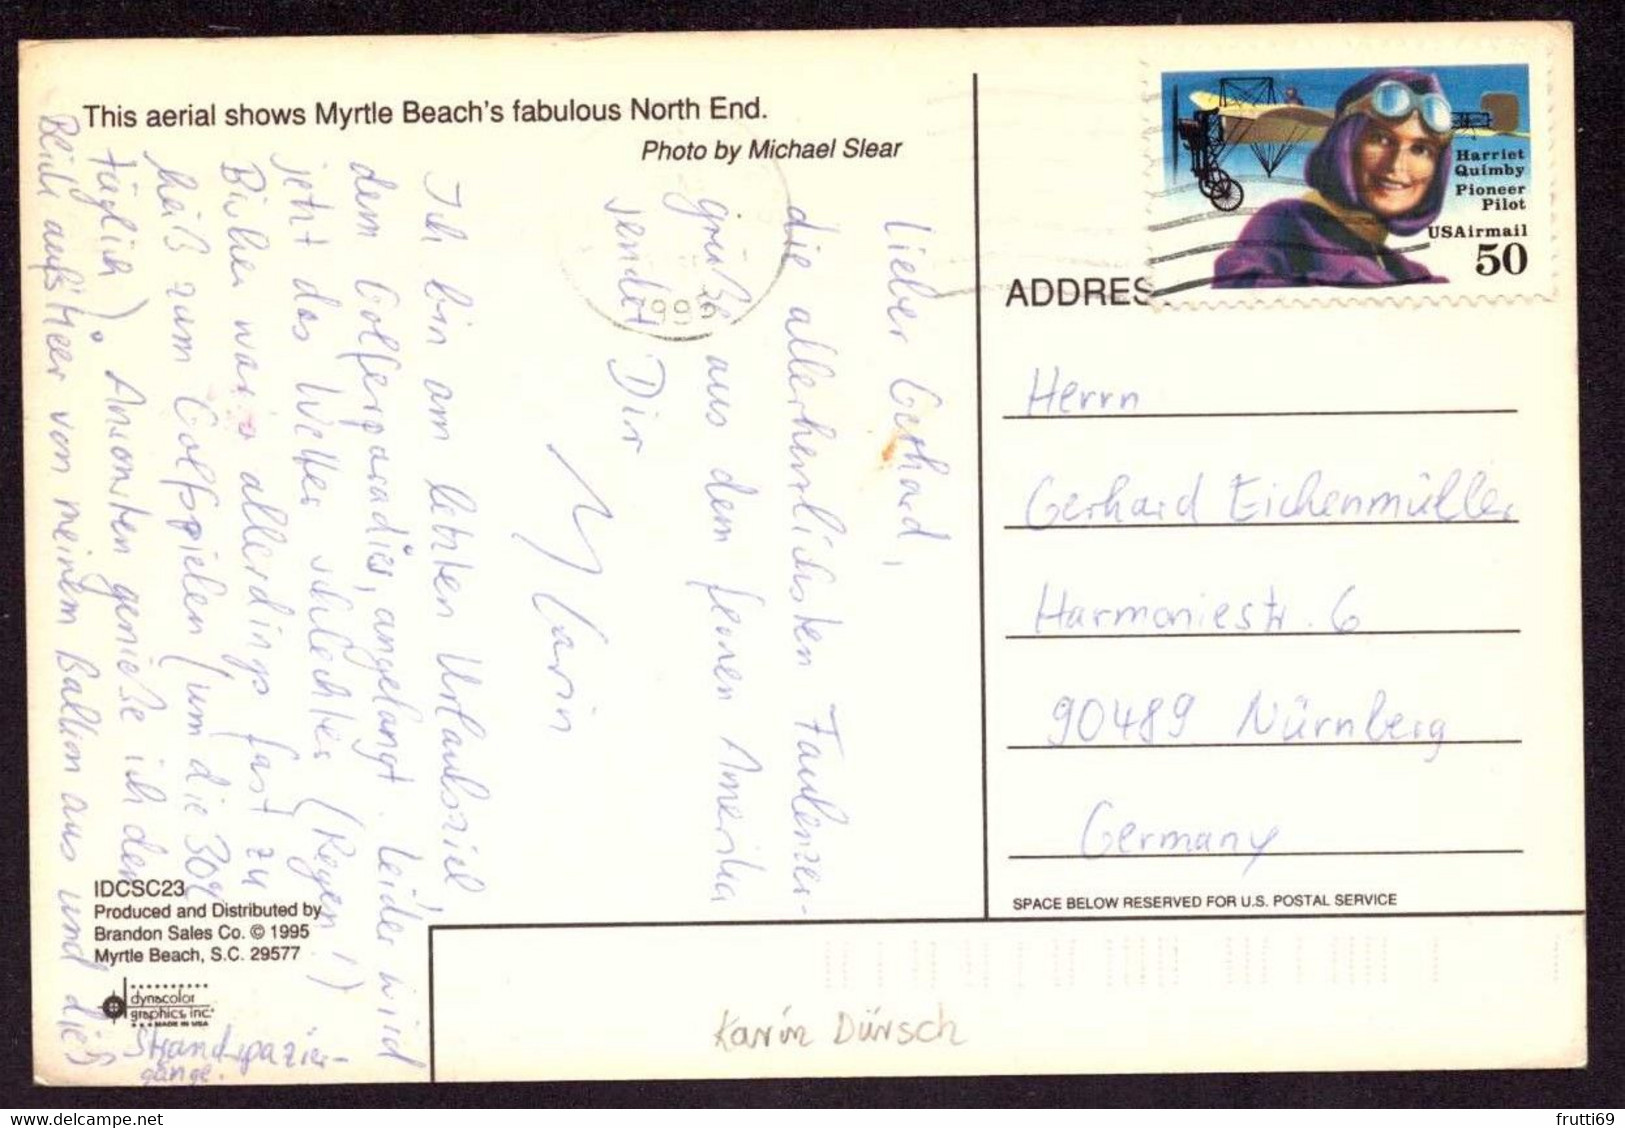 This aerial shows Myrtle Beach's fabulous North End.
Photo by Michael Slear
Lieber Gerhard,
die allerherzlichsten Faulenzer-
grüße aus dem fernen Amerika
sendet Dir
Karin
Ich bin am letzten Urlaubsziel,
dem Golferparadies, angelangt. Leider wird
jetzt das Wetter schlechter (Regen!)
Bisher war's allerdings fast zu
heiß zum Golfspielen (um die 30°
täglich). Ansonsten genieße ich den
Blick aufs Meer von meinem Balkon aus und die
Strandspazier-
gänge.
IDCSC23
Produced and Distributed by
Brandon Sales Co. © 1995
Myrtle Beach, S.C. 29577
dynacolor
graphics, inc.
MADE IN USA
1996
Harriet
Quimby
Pioneer
Pilot
USAirmail
50
ADDRES
Herrn
Gerhard Eichenmüller
Harmoniestr. 6
90489 Nürnberg
Germany
SPACE BELOW RESERVED FOR U.S. POSTAL SERVICE
Karin Dürsch
frutti69